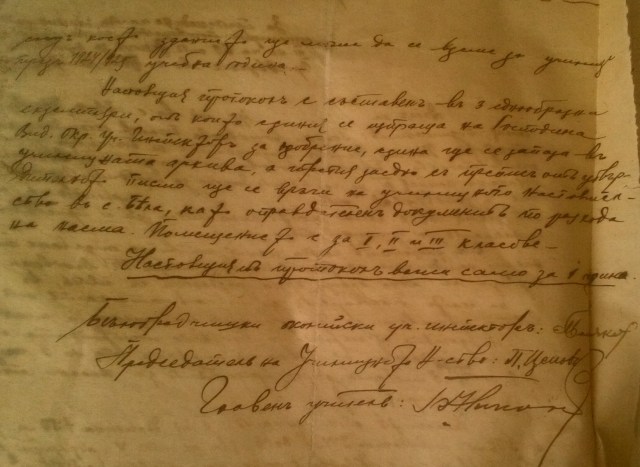 което зданието ще може да се вземе за училище
през 1924/925 учебна година.
Настоящия протоколъ е съставенъ въ 3 еднообразни
екземпляри, отъ които единия се изпраща на Господина
Вид. Окр. Уч. Инспекторъ за одобрение, единъ ще се запази въ
училищната архива, а третия заедно съ преписъ отъ утвър-
дителното писмо ще се връчи на училищното настоятел-
ство въ с. Бѣла, като оправдателенъ документъ по разхода
на наема. Помещението е за I, II и III класове.
Настоящиятъ протоколъ важи само за 1 година
Бѣлоградчишки околийски уч. инспекторъ:
Председатель на Училищното Н-ство: П. Цеков
Главенъ учитель: